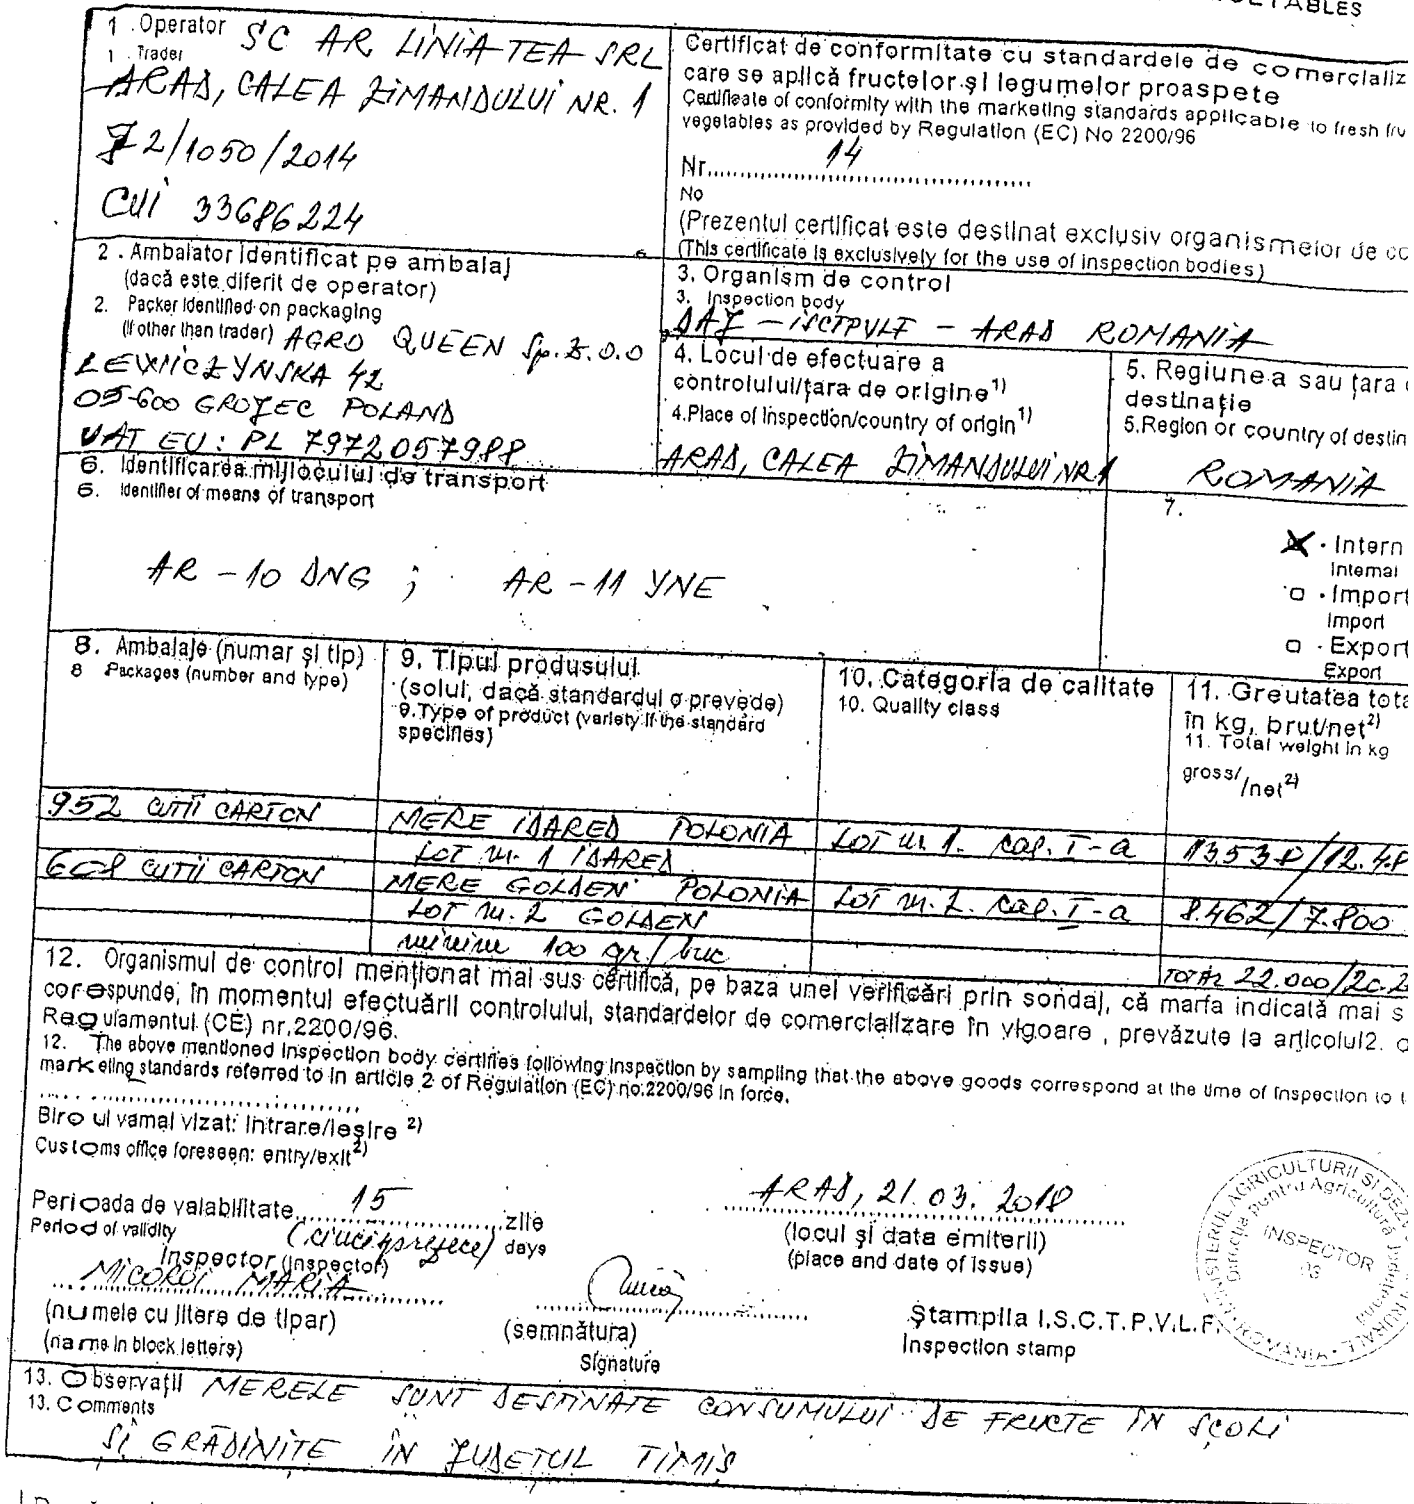 1 . Operator SC AR LINIA TEA SRL
1 . Trader
ARAD, CALEA ZIMANDULUI NR. 1
J 2/1050/2014
CUI 33686224
Certificat de conformitate cu standardele de comercializ
care se aplică fructelor şi legumelor proaspete
Certificate of conformity with the marketing standards applicable to fresh fru
vegetables as provided by Regulation (EC) No 2200/96
Nr. 14
No
(Prezentul certificat este destinat exclusiv organismelor de co
(This certificate is exclusively for the use of inspection bodies)
2 . Ambalator identificat pe ambalaj
(dacă este diferit de operator)
2. Packer identified on packaging
(if other than trader) AGRO QUEEN Sp. z. o.o
05-600 GROJEC POLAND
VAT EU: PL 7972057988
3. Organism de control
3. Inspection body
DAJ - ISCTPVLF - ARAD ROMANIA
4. Locul de efectuare a
controlului/ţara de origine1)
4.Place of inspection/country of origin1)
ARAD, CALEA ZIMANDULUI NR.1
5. Regiunea sau ţara d
destinaţie
5.Region or country of destin
ROMANIA
6. Identificarea mijlocului de transport
6. Identifier of means of transport
AR - 10 DNG ; AR - 11 YNE
7.
Intern
Internal
Import
Import
Export
Export
8. Ambalaje (numar şi tip)
8 Packages (number and type)
9. Tipul produsului
(soiul, dacă standardul o prevede)
9.Type of product (variety if the standard
specifies)
10. Categoria de calitate
10. Quality class
11. Greutatea tota
în kg, brut/net2)
11. Total weight in kg
gross/ /net2)
952 CUTII CARTON MERE IDARED POLONIA LOT nr. 1. cal. I-a 13538/12.48
LOT nr. 1 IDARED
608 CUTII CARTON MERE GOLDEN POLONIA LOT nr. 2. cal. I-a 8.462/7.800
LOT nr. 2 GOLDEN
minim 100 gr/buc
TOTAL 22.000/20.2
12. Organismul de control menţionat mai sus certifică, pe baza unei verificări prin sondaj, că marfa indicată mai s
corespunde, în momentul efectuării controlului, standardelor de comercializare în vigoare , prevăzute la articolul2. d
Regulamentul (CE) nr.2200/96.
12. The above mentioned inspection body certifies following inspection by sampling that the above goods correspond at the time of inspection to t
marketing standards referred to in article 2 of Regulation (EC) no.2200/96 in force.
Biroul vamal vizat: intrare/ieşire 2)
Customs office foreseen: entry/exit2)
Perioada de valabilitate 15 zile
Period of validity (cincisprezece) days
ARAD, 21.03.2018
(locul şi data emiterii)
(place and date of issue)
Inspector (inspector)
MICOROI MARIA
(numele cu litere de tipar)
(name in block letters)
(semnătura)
Signature
Ştampila I.S.C.T.P.V.L.F.
Inspection stamp
INSPECTOR
03
13. Observaţii MERELE SUNT DESTINATE CONSUMULUI DE FRUCTE ÎN ŞCOLI
13. Comments
ŞI GRĂDINIŢE ÎN JUDEŢUL TIMIŞ